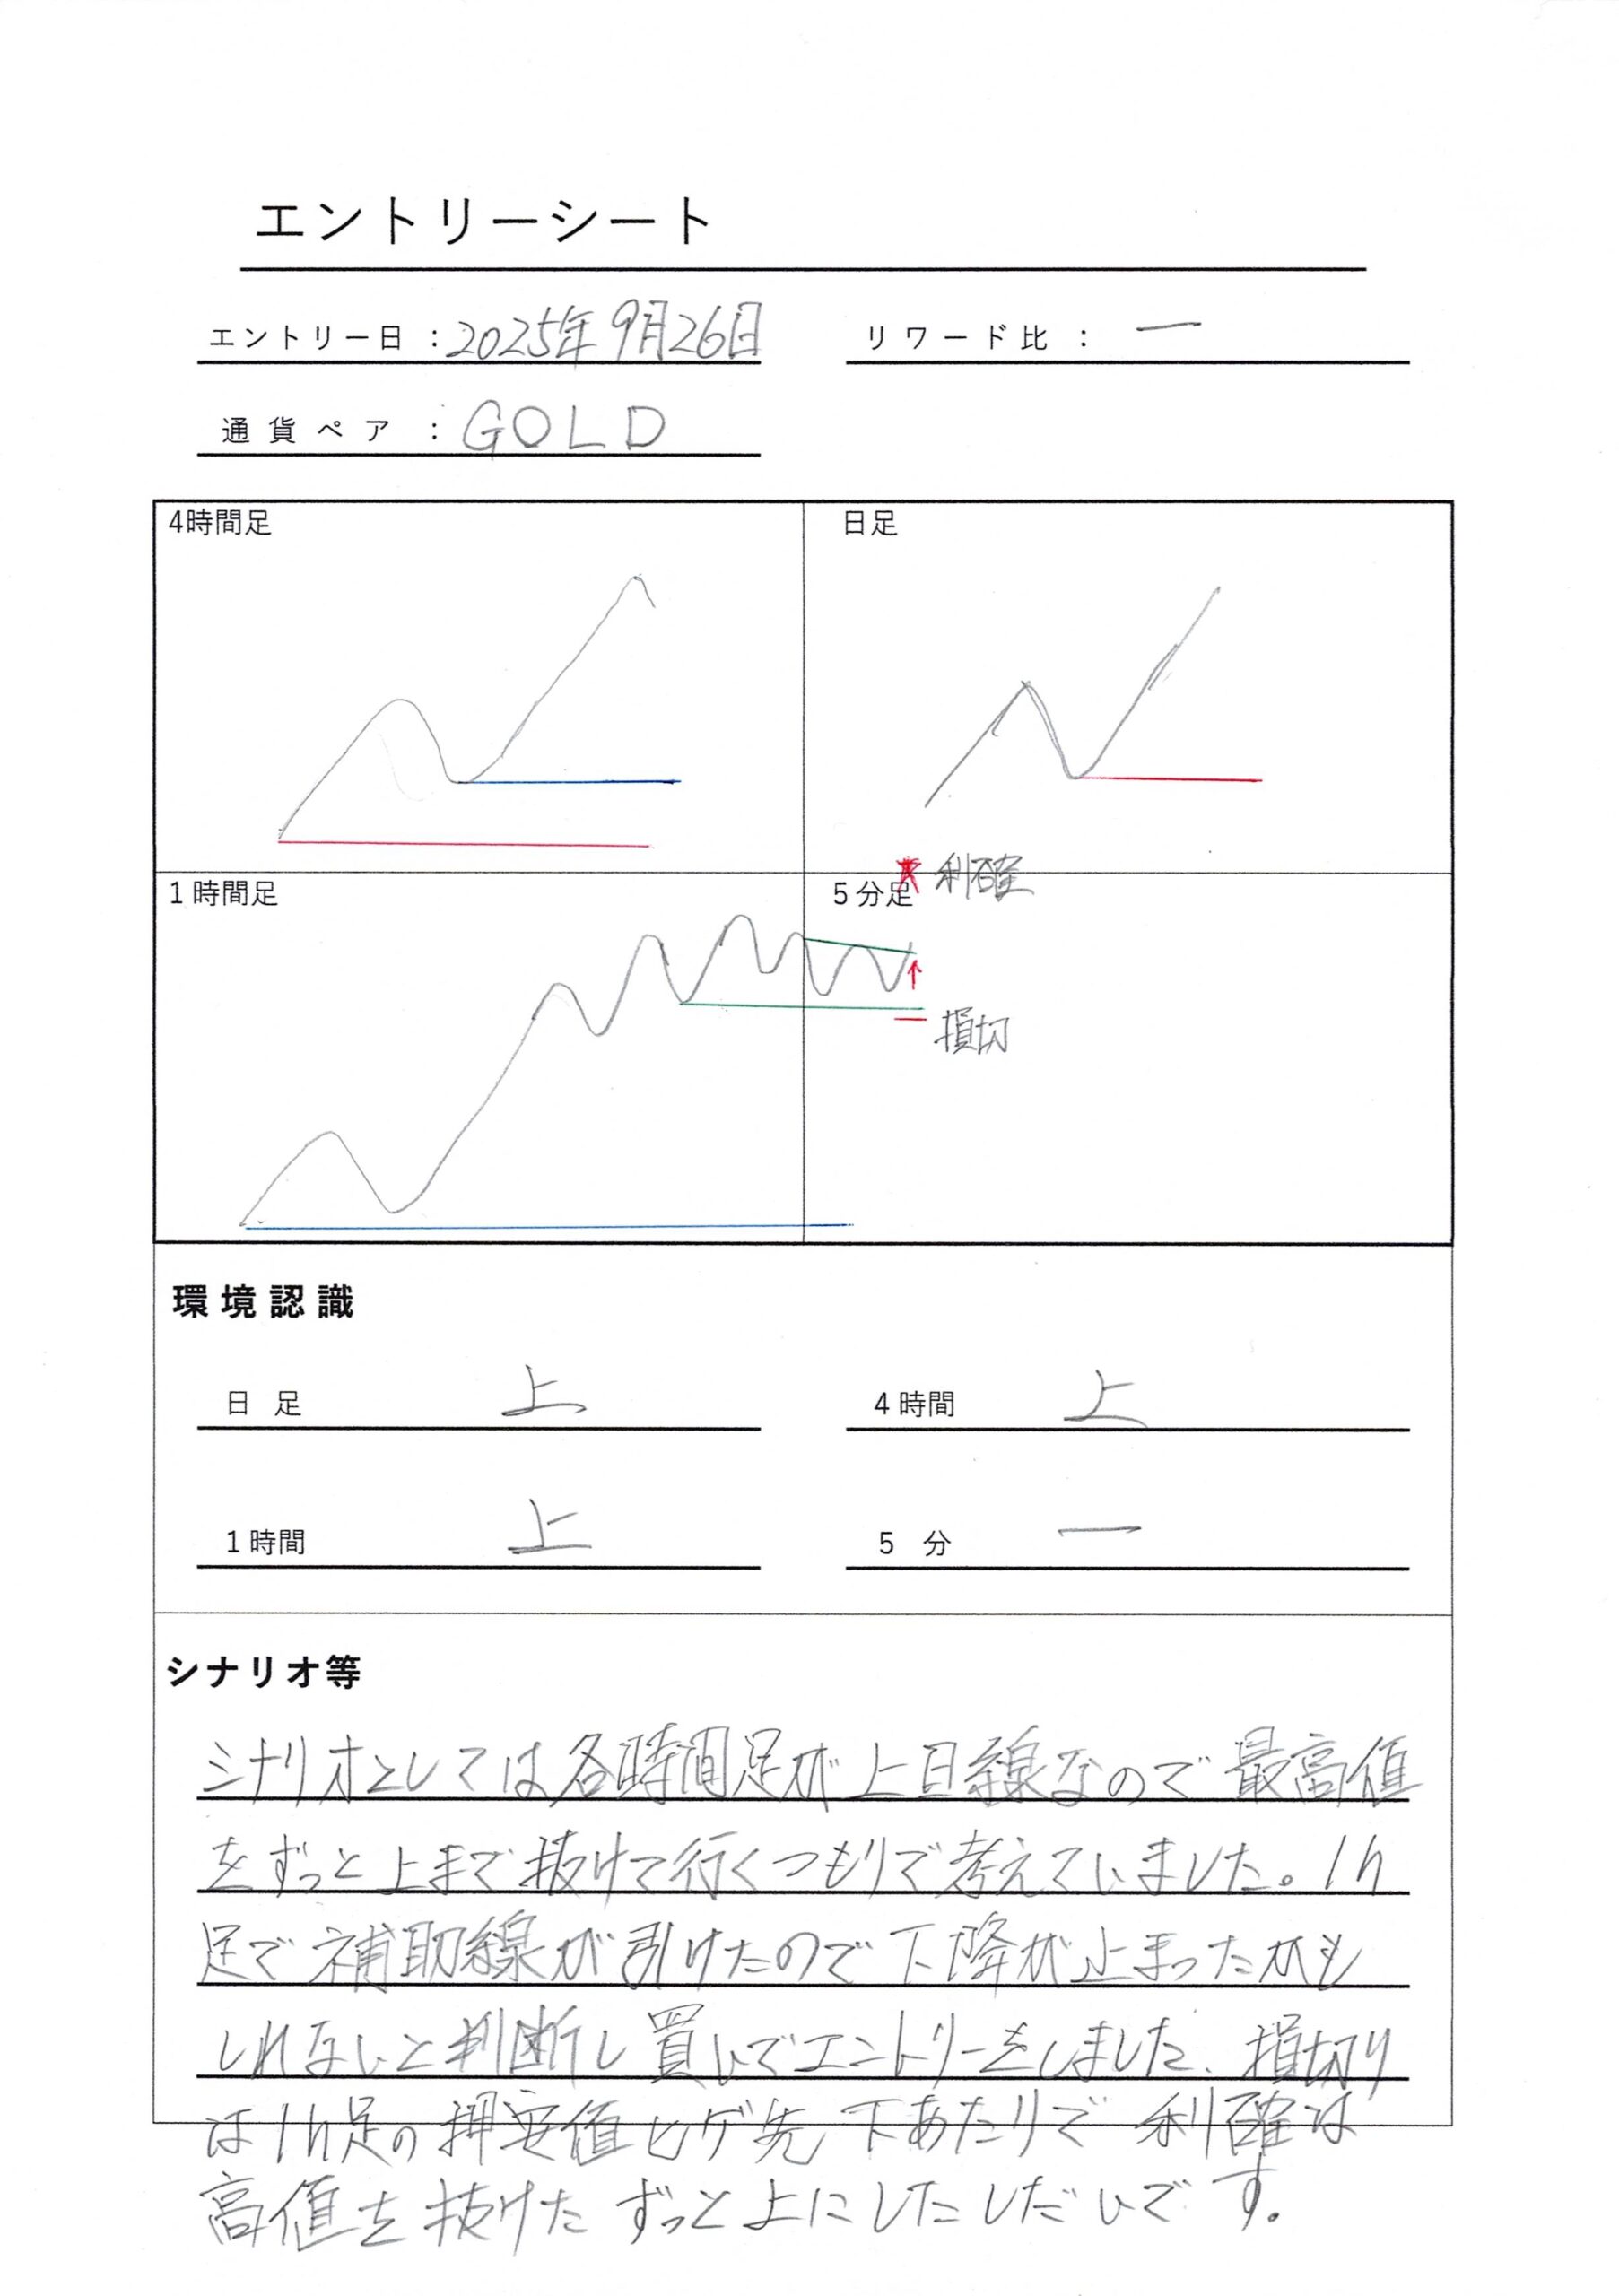 エントリーシート
エントリー日：2025年9月26日
リワード比：ー
通貨ペア：GOLD
4時間足
日足
1時間足
5分足
利確
損切
環境認識
日足 上
4時間 上
1時間 上
5分 ー
シナリオ等
シナリオとしては各時間足が上目線なので最高値
をずっと上まで抜けて行くつもりで考えていました。1h
足で補助線が引けたので下降が止まったかも
しれないと判断し買いでエントリーをしました。損切り
は1h足の押安値ヒゲ先下あたりで利確は
高値を抜けたずっと上にしたしだいです。